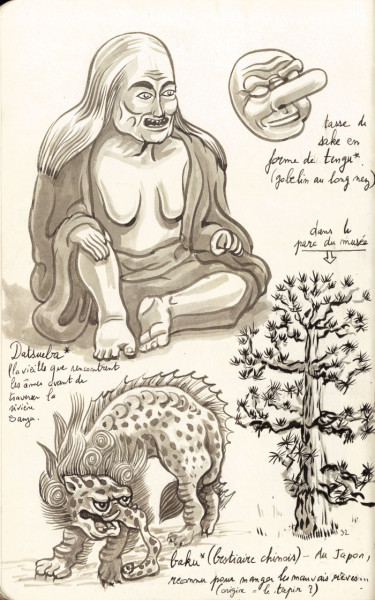 tasse de
sake en
forme de tengu*
(gobelin au long nez)
dans le
parc du musée
Datsueba*
la vieille que rencontrent
les âmes avant de
traverser la
rivière
Sanzu.
baku* (bestiaire chinois) - du Japon,
reconnu pour manger les mauvais rêves...
(origine = le tapir ?)